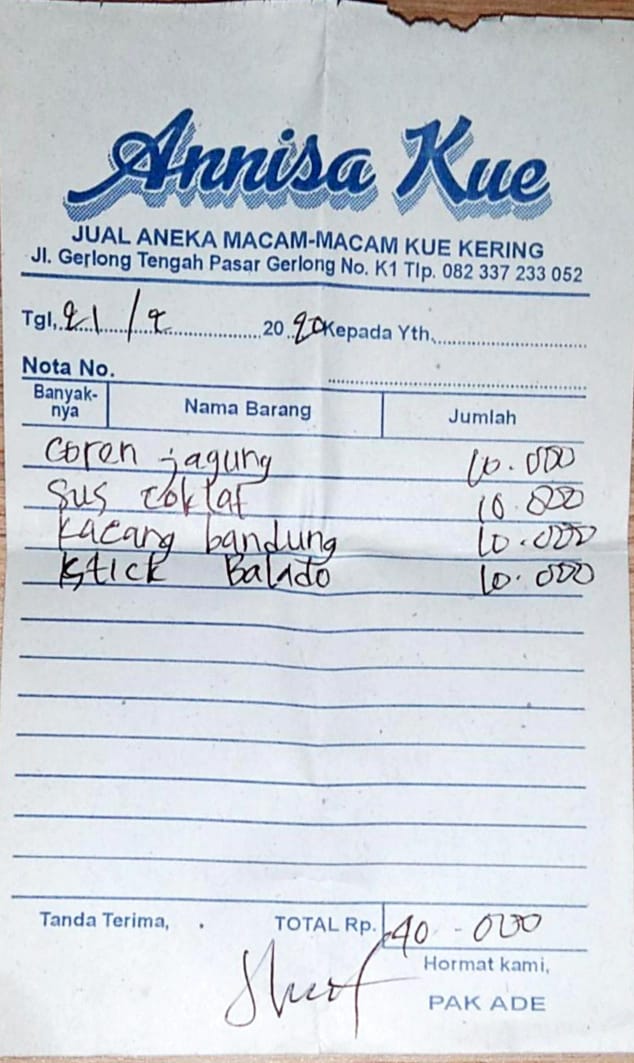 Annisa Kue
JUAL ANEKA MACAM-MACAM KUE KERING
Jl. Gerlong Tengah Pasar Gerlong No. K1 Tlp. 082 337 233 052
Tgl, 21 / 2 20 20 Kepada Yth.
Nota No.
Banyak-nya Nama Barang Jumlah
coren jagung 10.000
sus coklat 10.000
kacang bandung 10.000
stick Balado 10.000
Tanda Terima, TOTAL Rp. 40.000
Hormat kami,
PAK ADE